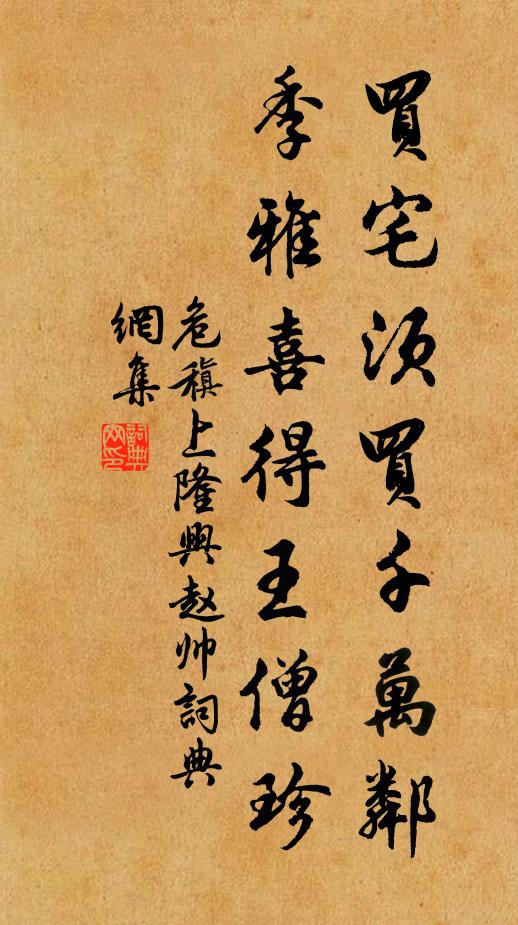 買宅須買千萬鄰
季雅喜得王僧珍
危稹上隆興赵帅詞典
網集
詞典
网印